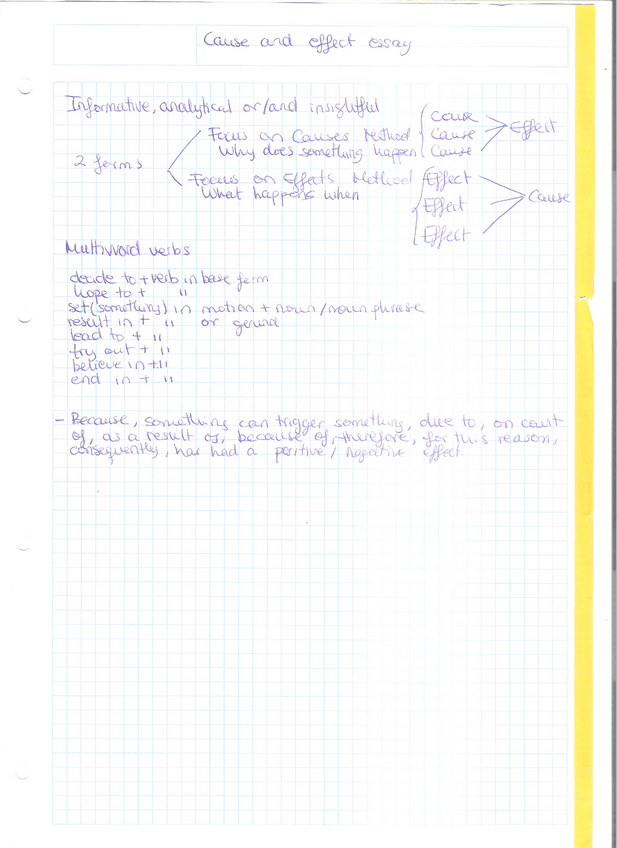 Cause and effect essay
Informative, analytical or/and insightful
2 forms
Focus on Causes Method
Why does something happen
Cause
Cause
Cause
Effect
Focus on Effects Method
What happens when
Effect
Effect
Effect
Cause
Multiword verbs
decide to + verb in base form
hope to + "
set (something) in motion + noun/noun phrase
result in + " or gerund
lead to + "
try out + "
believe in + "
end in + "
- Because, something can trigger something, due to, on count
of, as a result of, because of, therefore, for this reason,
consequently, has had a positive / negative effect